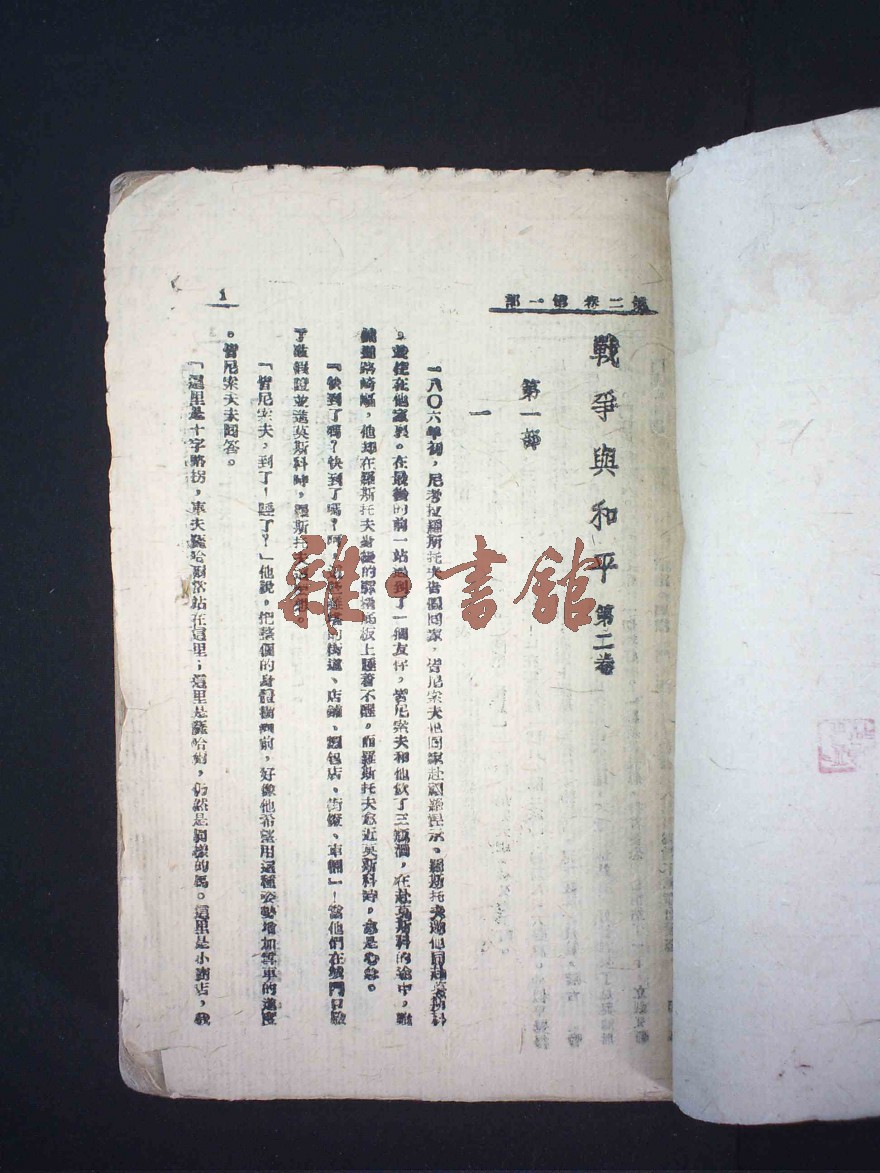 第二卷第一部
戰爭與和平 第二卷
第一部
一
一八〇六年初，尼考拉羅斯托夫告假回家，皆尼索夫也回家赴羅涅日，羅斯托夫邀他同赴莫斯科
，並住在他家裏。在最後的前一站遇到了一個友伴，皆尼索夫和他飲了三瓶酒，在赴莫斯科的途中，雖
路崎嶇，他却在羅斯托夫身邊的橇底板上睡着不醒。而羅斯托夫愈近莫斯科時，愈是心急。
「快到了嗎？快到了嗎？街道、店鋪、麵包店、街燈、車輛」！當他們在城門口驗
了准假證並進莫斯科時，羅斯托夫
「皆尼索夫，到了！睡了？」他說，把整個的身體傾向前，好像他希望用這種姿勢增加雪車的速度
。皆尼索夫未回答。
「這里是十字路拐，車夫薩哈爾常站在這里；這里是薩哈爾，仍然是同樣的馬。這里是小商店，我
1
雜·書館